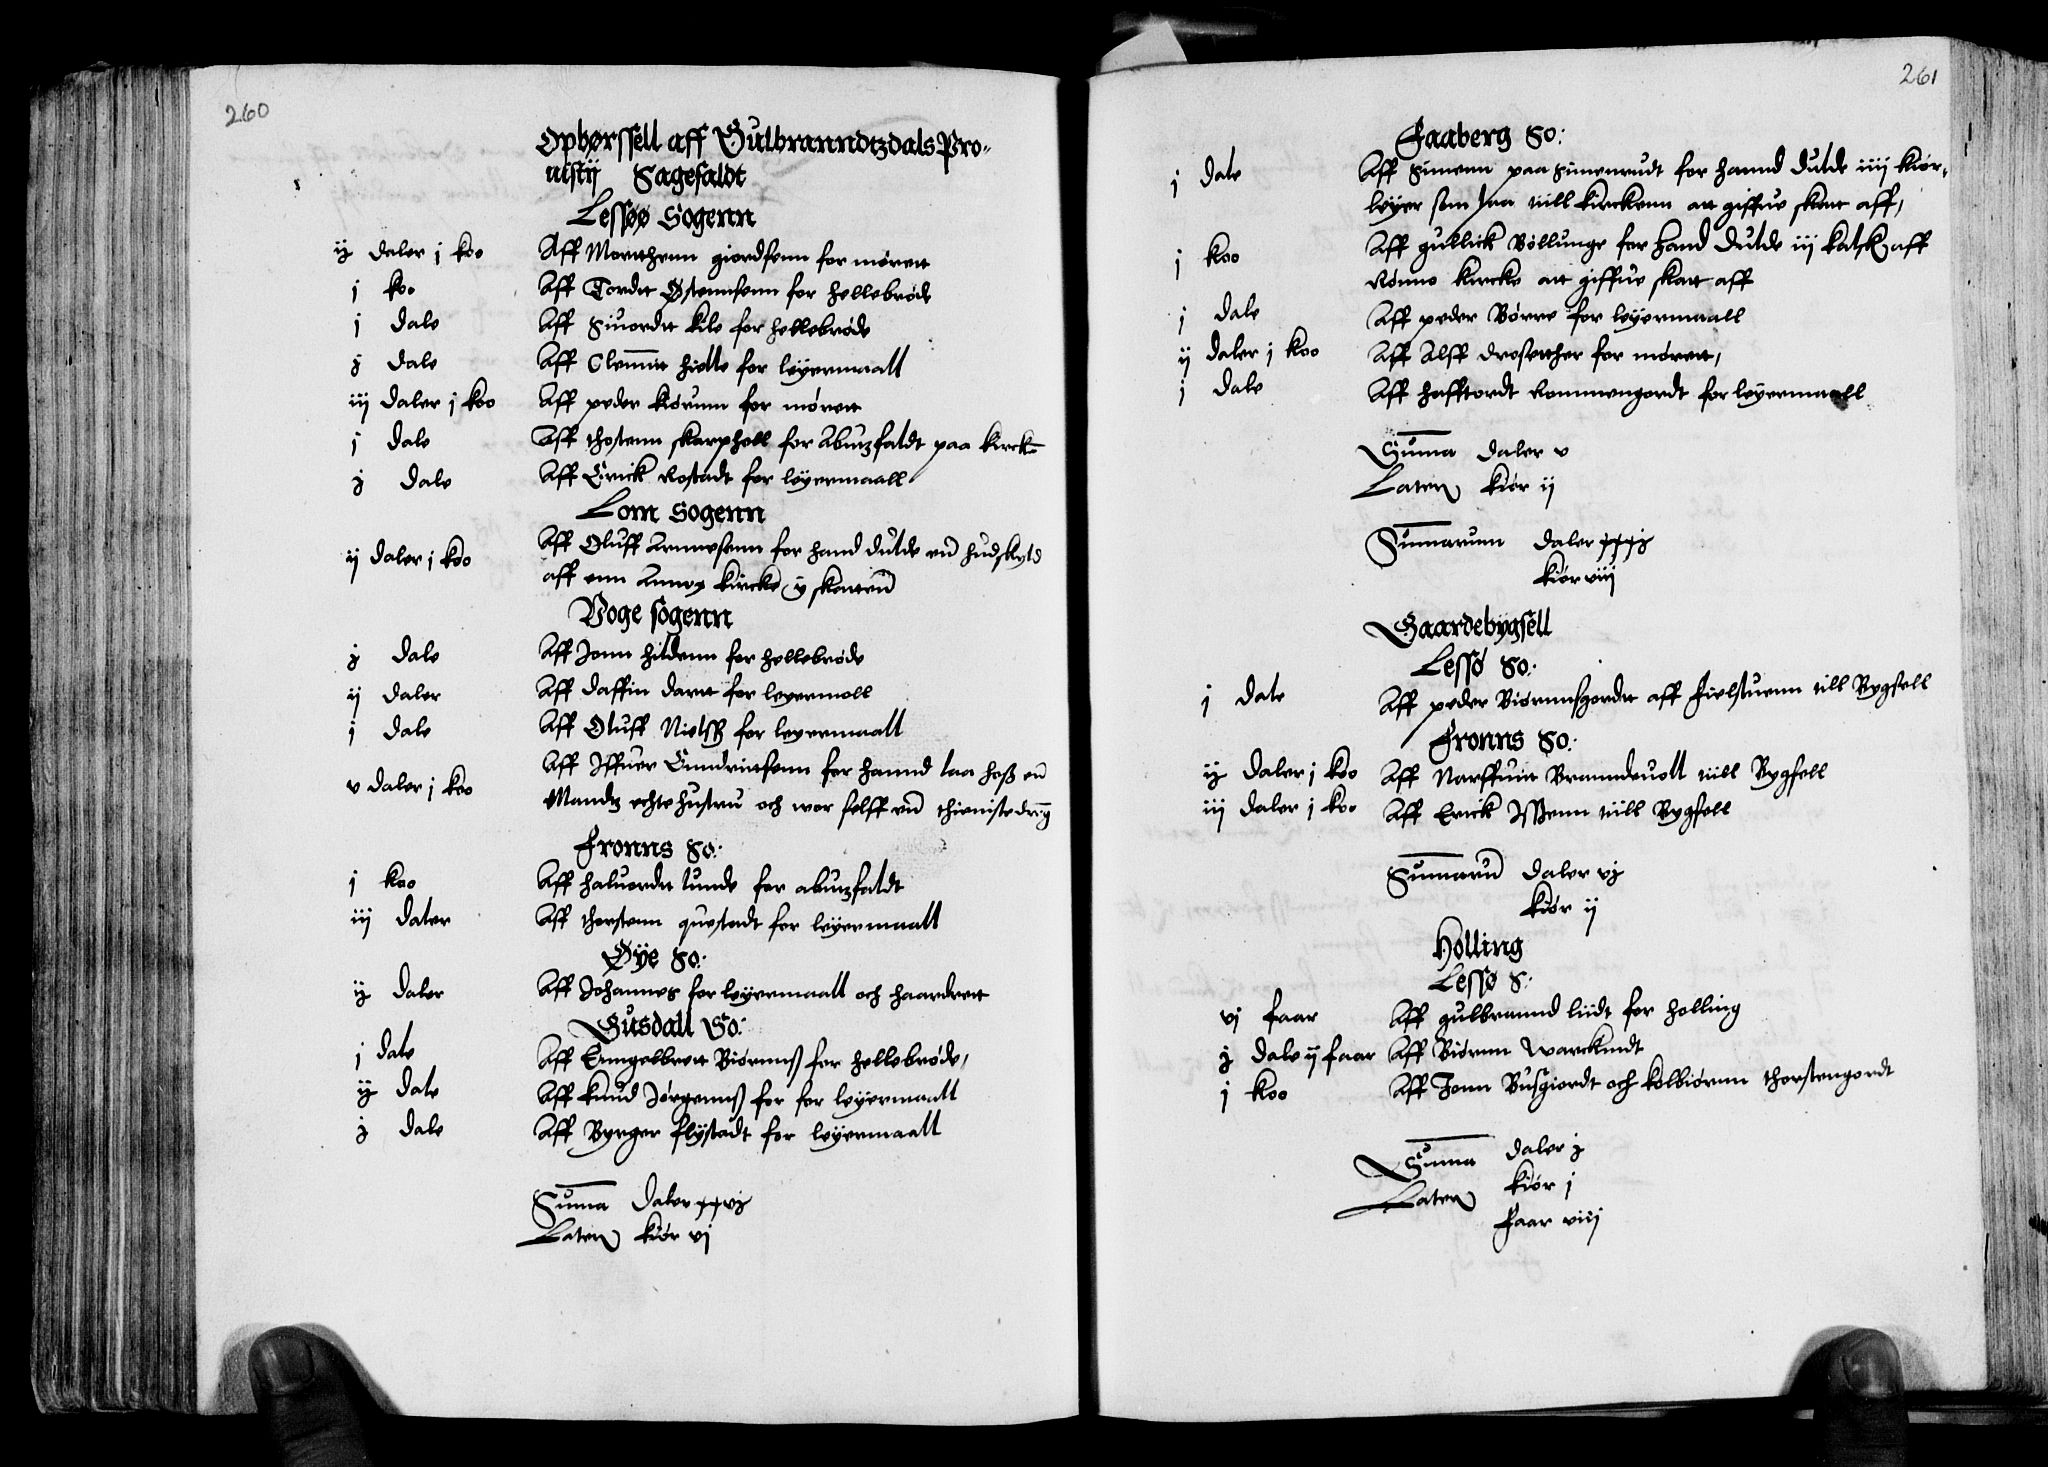 260
Opbørssell aff Gulbranndtzdals Pro-
uistij Sagefaldt
Lessøø Sogenn
ij daler j koo Aff Mortthenn giordsenn for mørett
j koo Aff Tordt Østennsenn for hellebrøde
j dale Aff Siuordt kile for hellebrøde
j dale Aff Clemitt hiolle for leyermaall
iij daler j koo Aff peder kiørum for mørett
j dale Aff thostenn skarphell for Abutzfaldt paa kircke
j dale Aff Erick Rostadt for leyermaall
Lom Sogenn
ij daler j koo Aff Oluff Arnnesenn for hand dulde en hudskyld
aff enn Annex kircke ij skatten
Voge sogenn
j dale Aff Jonn hildenn for hellebrøde
ij daler Aff daffin dartt for leyermoll
j dale Aff Oluff Nielss for leyermaall
v daler j koo Aff Iffuer Enndrittsenn for hannd laa hoss en
Mandtz echte hustru och wor selff en thieniste dreng
Fronns So:
j koo Aff haluordt lunde for abutzfaldt
iij daler Aff thorstenn questadt for leyermaall
Øÿe So:
ij daler Aff Johannes for leyermaall och haardrett
Gusdall So:
j dale Aff Enngelbrett Biørnnss for hellebrøde,
ij dale Aff knud Jørgennss for for leyermaall
j dale Aff Byrger flÿstadt for leÿermaall
Suma daler xxvj
Lateris kiør vj
261
Faaberg So:
j dale Aff Simenn paa Simenrudt for hannd dulde iiij kiør-
leyer som laa till kirckenn att giffue skatt aff,
j koo Aff gullick Bøllunge for hand dulde iij kalsk aff
Rønne kircke att giffue skatt aff
j dale Aff peder Børre for leÿermaall
ij daler j koo Aff Alff drosetther for mørett,
j dale Aff hafftordt Rommengordt for leyermaall
Suma daler v
Lateris kiør ij
Sumarum daler xxxj
kiør viij
Gaardebÿgsell
Lessø So:
j dale Aff peder Biørnnsgordtt aff fielstuenn till Bygsell
Fronns So:
ij daler j koo Aff Narffuitt Branndeuoll till Bygsell
iij daler j koo Aff Erick Issenn till Bygsell
Sumarum daler vj
kiør ij
Holling
Lessø S:
vj faar Aff gulbrannd liidt for holling
j dale ij faar Aff Biørnn Warckindt
j koo Aff Jonn Busgiordt och kolbiørnn thorstengordt
Suma daler j
Lateris kiør j
Faar viij